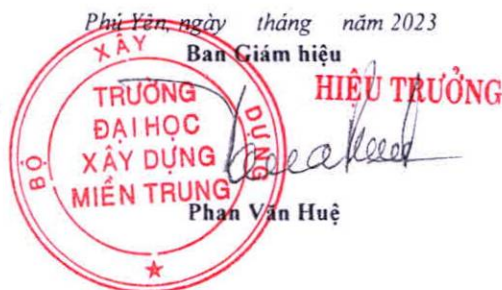 Phú Yên, ngày tháng năm 2023
Ban Giám hiệu
HIỆU TRƯỞNG
BỘ XÂY DỰNG
TRƯỜNG
ĐẠI HỌC
XÂY DỰNG
MIỀN TRUNG
Phan Văn Huệ